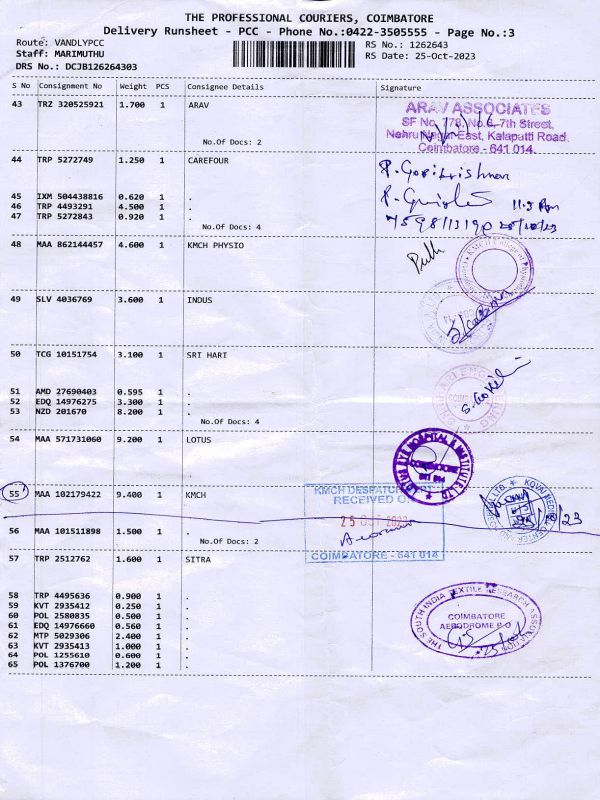 THE PROFESSIONAL COURIERS, COIMBATORE
Delivery Runsheet - PCC - Phone No.:0422-3505555 - Page No.:3
Route: VANDLYPCC
Staff: MARIMUTHU
DRS No.: DCJB126264303
RS No.: 1262643
RS Date: 25-Oct-2023
S No Consignment No Weight PCS Consignee Details Signature
43 TRZ 320525921 1.700 1 ARAV
No.Of Docs: 2
ARAV ASSOCIATES
SF No. 778, No.6, 7th Street,
Nehru Nagar East, Kalapatti Road,
Coimbatore - 641 014.
44 TRP 5272749 1.250 1 CAREFOUR
45 IXM 504438816 0.620 1 .
46 TRP 4493291 4.500 1 .
47 TRP 5272843 0.920 1 .
No.Of Docs: 4
48 MAA 862144457 4.600 1 KMCH PHYSIO
49 SLV 4036769 3.600 1 INDUS
50 TCG 10151754 3.100 1 SRI HARI
51 AMD 27690403 0.595 1 .
52 EDQ 14976275 3.300 1 .
53 NZD 201670 8.200 1 .
No.Of Docs: 4
54 MAA 571731060 9.200 1 LOTUS
LOTUS EYE HOSPITAL & INSTITUTE LTD
COIMBATORE
641 014
55 MAA 102179422 9.400 1 KMCH
KMCH DESPATCH
RECEIVED ON
25 OCT 2023
COIMBATORE - 641 014
56 MAA 101511898 1.500 1 .
No.Of Docs: 2
57 TRP 2512762 1.600 1 SITRA
58 TRP 4495636 0.900 1 .
59 KVT 2935412 0.250 1 .
60 POL 2580835 0.500 1 .
61 EDQ 14976660 0.560 1 .
62 MTP 5029306 2.400 1 .
63 KVT 2935413 1.000 1 .
64 POL 1255610 0.600 1 .
65 POL 1376700 1.200 1 .
THE SOUTH INDIA TEXTILE RESEARCH ASSOCIATION
COIMBATORE
AERODROME P.O